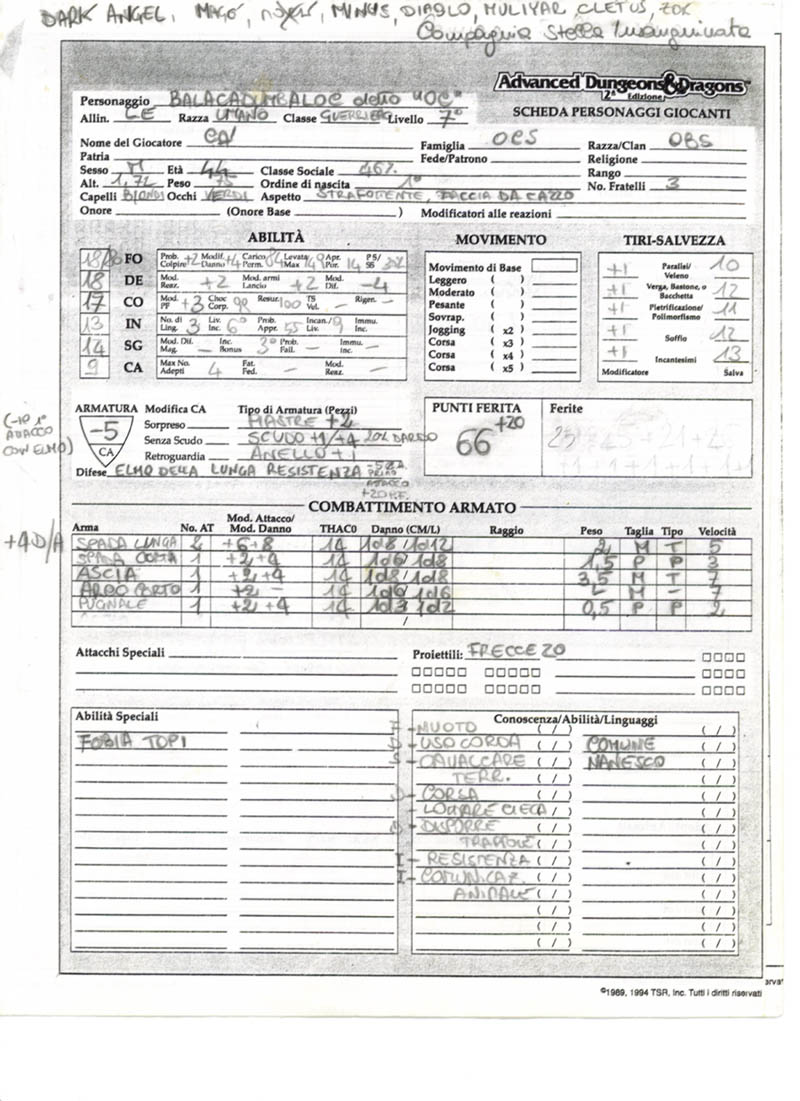 DARK ANGEL, MAGO, MINUS, DIABLO, MULIYAR, CLETUS, ZOR
Compagnia Stella Insanguinata
Advanced Dungeons & Dragons
2ª Edizione
SCHEDA PERSONAGGI GIOCANTI
Personaggio BALACADUMBALOC detto "OC"
Allin. LE Razza UMANO Classe GUERRIERO Livello 7°
Nome del Giocatore CA' Famiglia OCS Razza/Clan OBS
Patria Fede/Patrono Religione
Sesso M Età 44 Classe Sociale 46% Rango
Alt. 1,72 Peso 75 Ordine di nascita 1° No. Fratelli 3
Capelli BIONDI Occhi VERDI Aspetto STRAFOTTENTE, FACCIA DA CAZZO
Onore (Onore Base ) Modificatori alle reazioni
ABILITÀ
FO Prob. Colpire +2 Modif. Danno +4 Carico Perm. Levata Max Apr. Por. 14 PS/SS
18 DE Mod. Reaz. +2 Mod. armi Lancio +2 Mod. Dif. -4
17 CO Mod. PF +3 Choc Corp. Resur. 100 TS Vel. - Rigen. -
13 IN No. di Ling. 3 Liv. Inc. 6° Prob. Appr. 55 Incan./Liv. 9 Immu. Inc. -
14 SG Mod. Dif. Mag. - Inc. Bonus 3° Prob. Fall. - Immu. Inc. -
9 CA Max No. Adepti 4 Fat. Fed. - Mod. Reaz. -
MOVIMENTO
Movimento di Base
Leggero ( )
Moderato ( )
Pesante ( )
Sovrap. ( )
Jogging ( x2 )
Corsa ( x3 )
Corsa ( x4 )
Corsa ( x5 )
TIRI-SALVEZZA
+1 Paralisi/Veleno 10
+1 Verga, Bastone, o Bacchetta 12
+1 Pietrificazione/Polimorfismo 11
+1 Soffio 12
+1 Incantesimi 13
Modificatore Salva
(-10 1° ATTACCO CON ELMO)
ARMATURA Modifica CA Tipo di Armatura (Pezzi)
-5
CA
Sorpreso PIASTRE +2
Senza Scudo SCUDO +1/+4 DARDO
Retroguardia ANELLO +1
Difese ELMO DELLA LUNGA RESISTENZA
ATTACCO
+20 P.F.
PUNTI FERITA
66 +20
Ferite
COMBATTIMENTO ARMATO
Arma No. AT Mod. Attacco/Mod. Danno THAC0 Danno (CM/L) Raggio Peso Taglia Tipo Velocità
+4D/A
SPADA LUNGA 2 +6+8 14 1d8/1d12 2 M T 5
SPADA CORTA 1 +2+4 14 1d6/1d8 1,5 P P 3
ASCIA 1 +2+4 14 1d8/1d8 3,5 M T 7
ARCO CORTO 1 +2 - 14 1d6/1d6 M - 7
PUGNALE 1 +2+4 14 1d3 1d2 0,5 P P 2
/
Attacchi Speciali
Proiettili: FRECCE 20
Abilità Speciali
FOBIA TOPI
Conoscenza/Abilità/Linguaggi
F - NUOTO ( / )
D - USO CORDA ( / ) COMUNE ( / )
S - CAVALCARE ( / ) NANESCO ( / )
TERR. ( / )
D - CORSA ( / )
- LOTTARE CIECA ( / )
D - DISPORRE ( / )
TRAPPOLE ( / )
I - RESISTENZA ( / )
I - COMUNICAZ. ( / )
ANIMALE ( / )
©1989, 1994 TSR, Inc. Tutti i diritti riservati